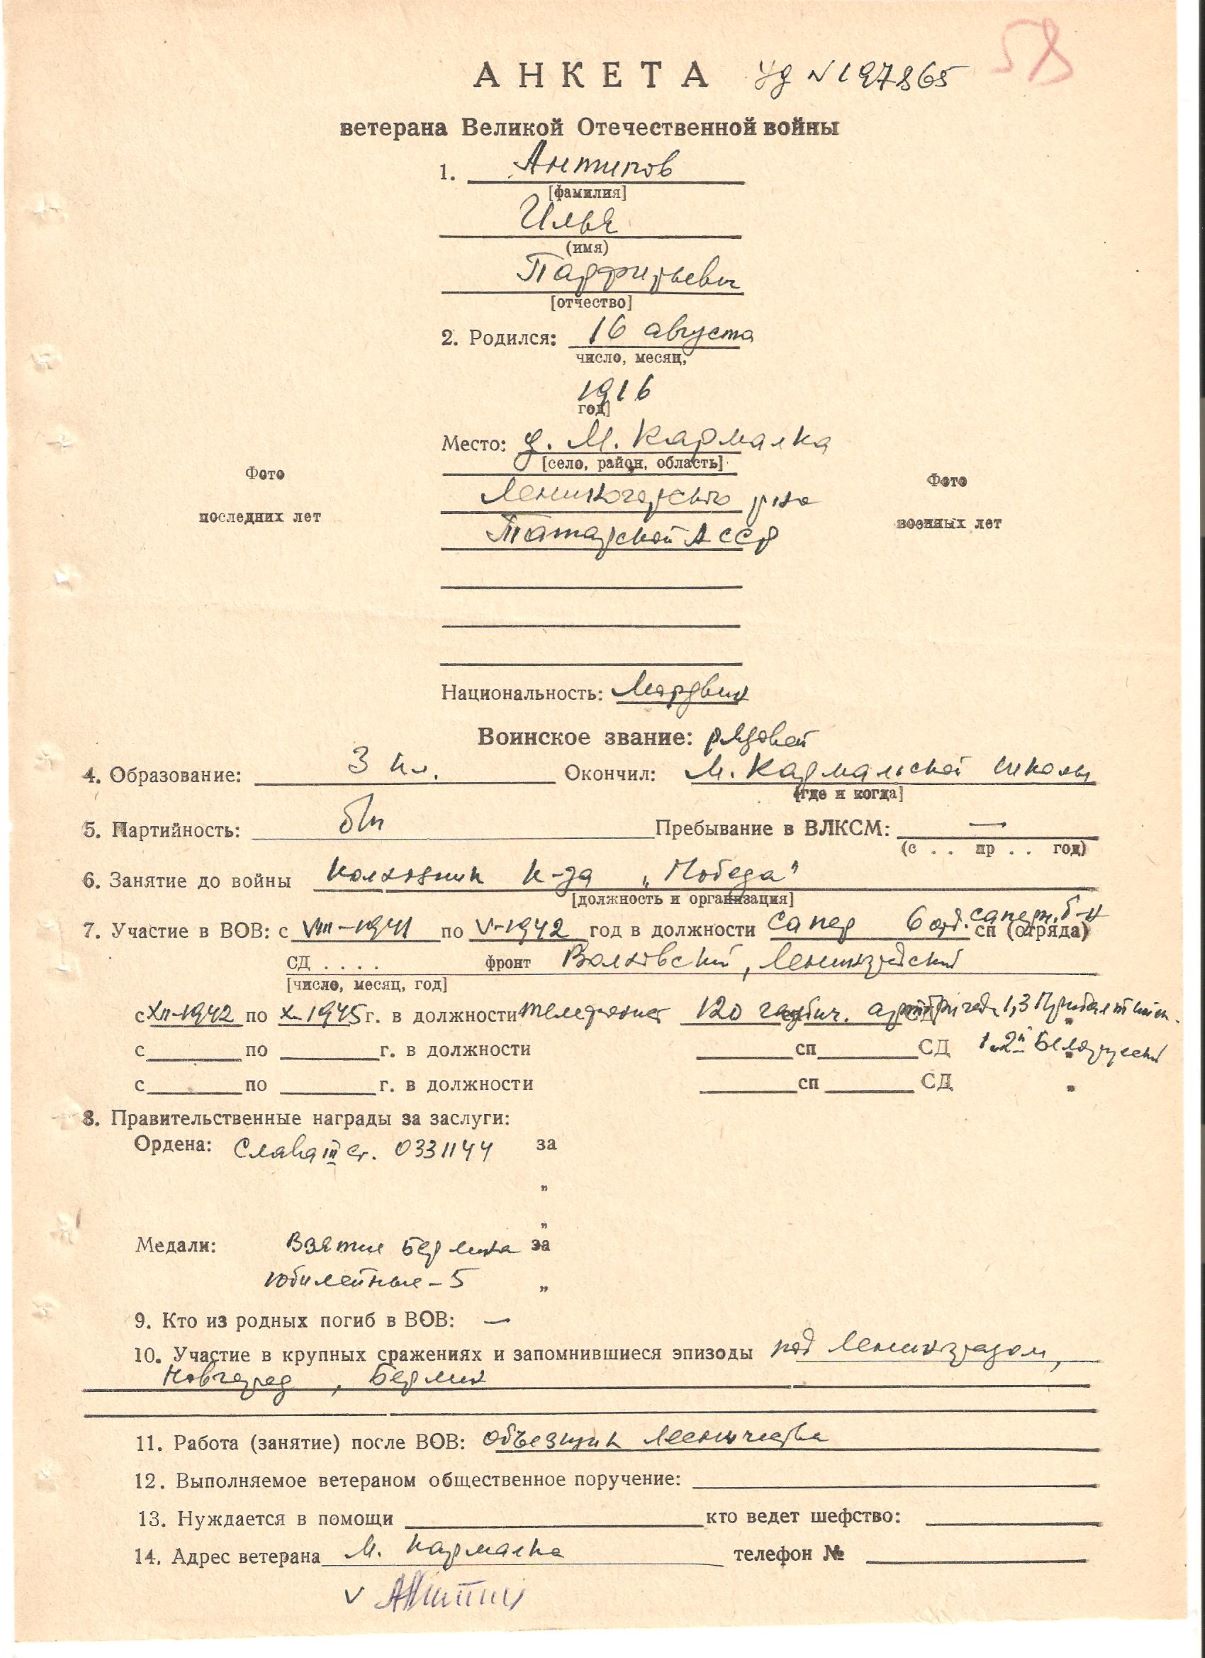 58
АНКЕТА уд N 197865
ветерана Великой Отечественной войны
1. Антипов
[фамилия]
Илья
(имя)
Парфирьевич
[отчество]
2. Родился: 16 августа
число, месяц,
1916
год]
Место: д. М. Кармалка
[село, район, область]
Фото
последних лет
Фото
военных лет
Лениногорского р-на
Татарской АССР
Национальность: Мордвин
Воинское звание: рядовой
4. Образование: 3 кл. Окончил: М. Кармальской школы
[где и когда]
5. Партийность: бп Пребывание в ВЛКСМ: —
(с . . пр . . год)
6. Занятие до войны колхозник к-за „Победа"
[должность и организация]
7. Участие в ВОВ: с VIII-1941 по V-1942 год в должности сапер 6 отд. саперн. б-н сп (отряда)
СД . . . . фронт Волховский, Ленинградский
[число, месяц, год]
с XII-1942 по X-1945 г. в должности телефонист 120 гаубич. арт бригады 1,3 Прибалтийск.
с по г. в должности сп СД 1 и 2й Белорусский
с по г. в должности сп СД „
8. Правительственные награды за заслуги:
Ордена: Слава III ст. 0331144 за
„
„
Медали: Взятие Берлина за
юбилейные - 5 „
9. Кто из родных погиб в ВОВ: —
10. Участие в крупных сражениях и запомнившиеся эпизоды под Ленинградом,
Новгород, Берлин
11. Работа (занятие) после ВОВ: объездчик лесничества
12. Выполняемое ветераном общественное поручение:
13. Нуждается в помощи кто ведет шефство:
14. Адрес ветерана М. Кармалка телефон №
V